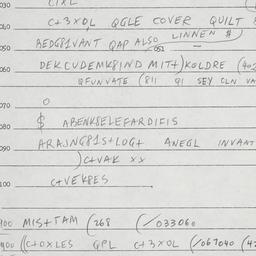 030 CIXL
040 C+3XOL QGLE COVER QUILT
LINNEN #)
050 BEDG81VANT QAP ALSO
051
060 DEKCUDEMK81ND MIT+)KOLDRE (40
QFUNVATE (811 91 SEY CLN VA
070 O
080 $ ABENKBELEFARDIFIS
090 ARAJNG81S+LOG+ ANEGL INVANT
)C+VAK XX
100 C+VEKPES
900 MIS+TAM (268 (/033060
400 ((C+OXLES QPL C+3XOL (/067040 (4